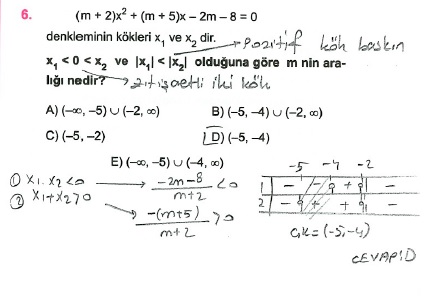 6. (m + 2)x² + (m + 5)x – 2m – 8 = 0
denkleminin kökleri x₁ ve x₂ dir.
→ pozitif kök baskın
x₁ < 0 < x₂ ve |x₁| < |x₂| olduğuna göre m nin ara-
lığı nedir? → zıt işaretli iki kök
A) (–∞, –5) ∪ (–2, ∞) B) (–5, –4) ∪ (–2, ∞)
C) (–5, –2) D) (–5, –4)
E) (–∞, –5) ∪ (–4, ∞)
① x₁.x₂<0 → -2m-8/m+2 <0
② x₁+x₂>0 → -(m+5)/m+2 >0
-5 -4 -2
1 - - + -
2 - + + -
Ç.K = (-5,-4)
CEVAP D